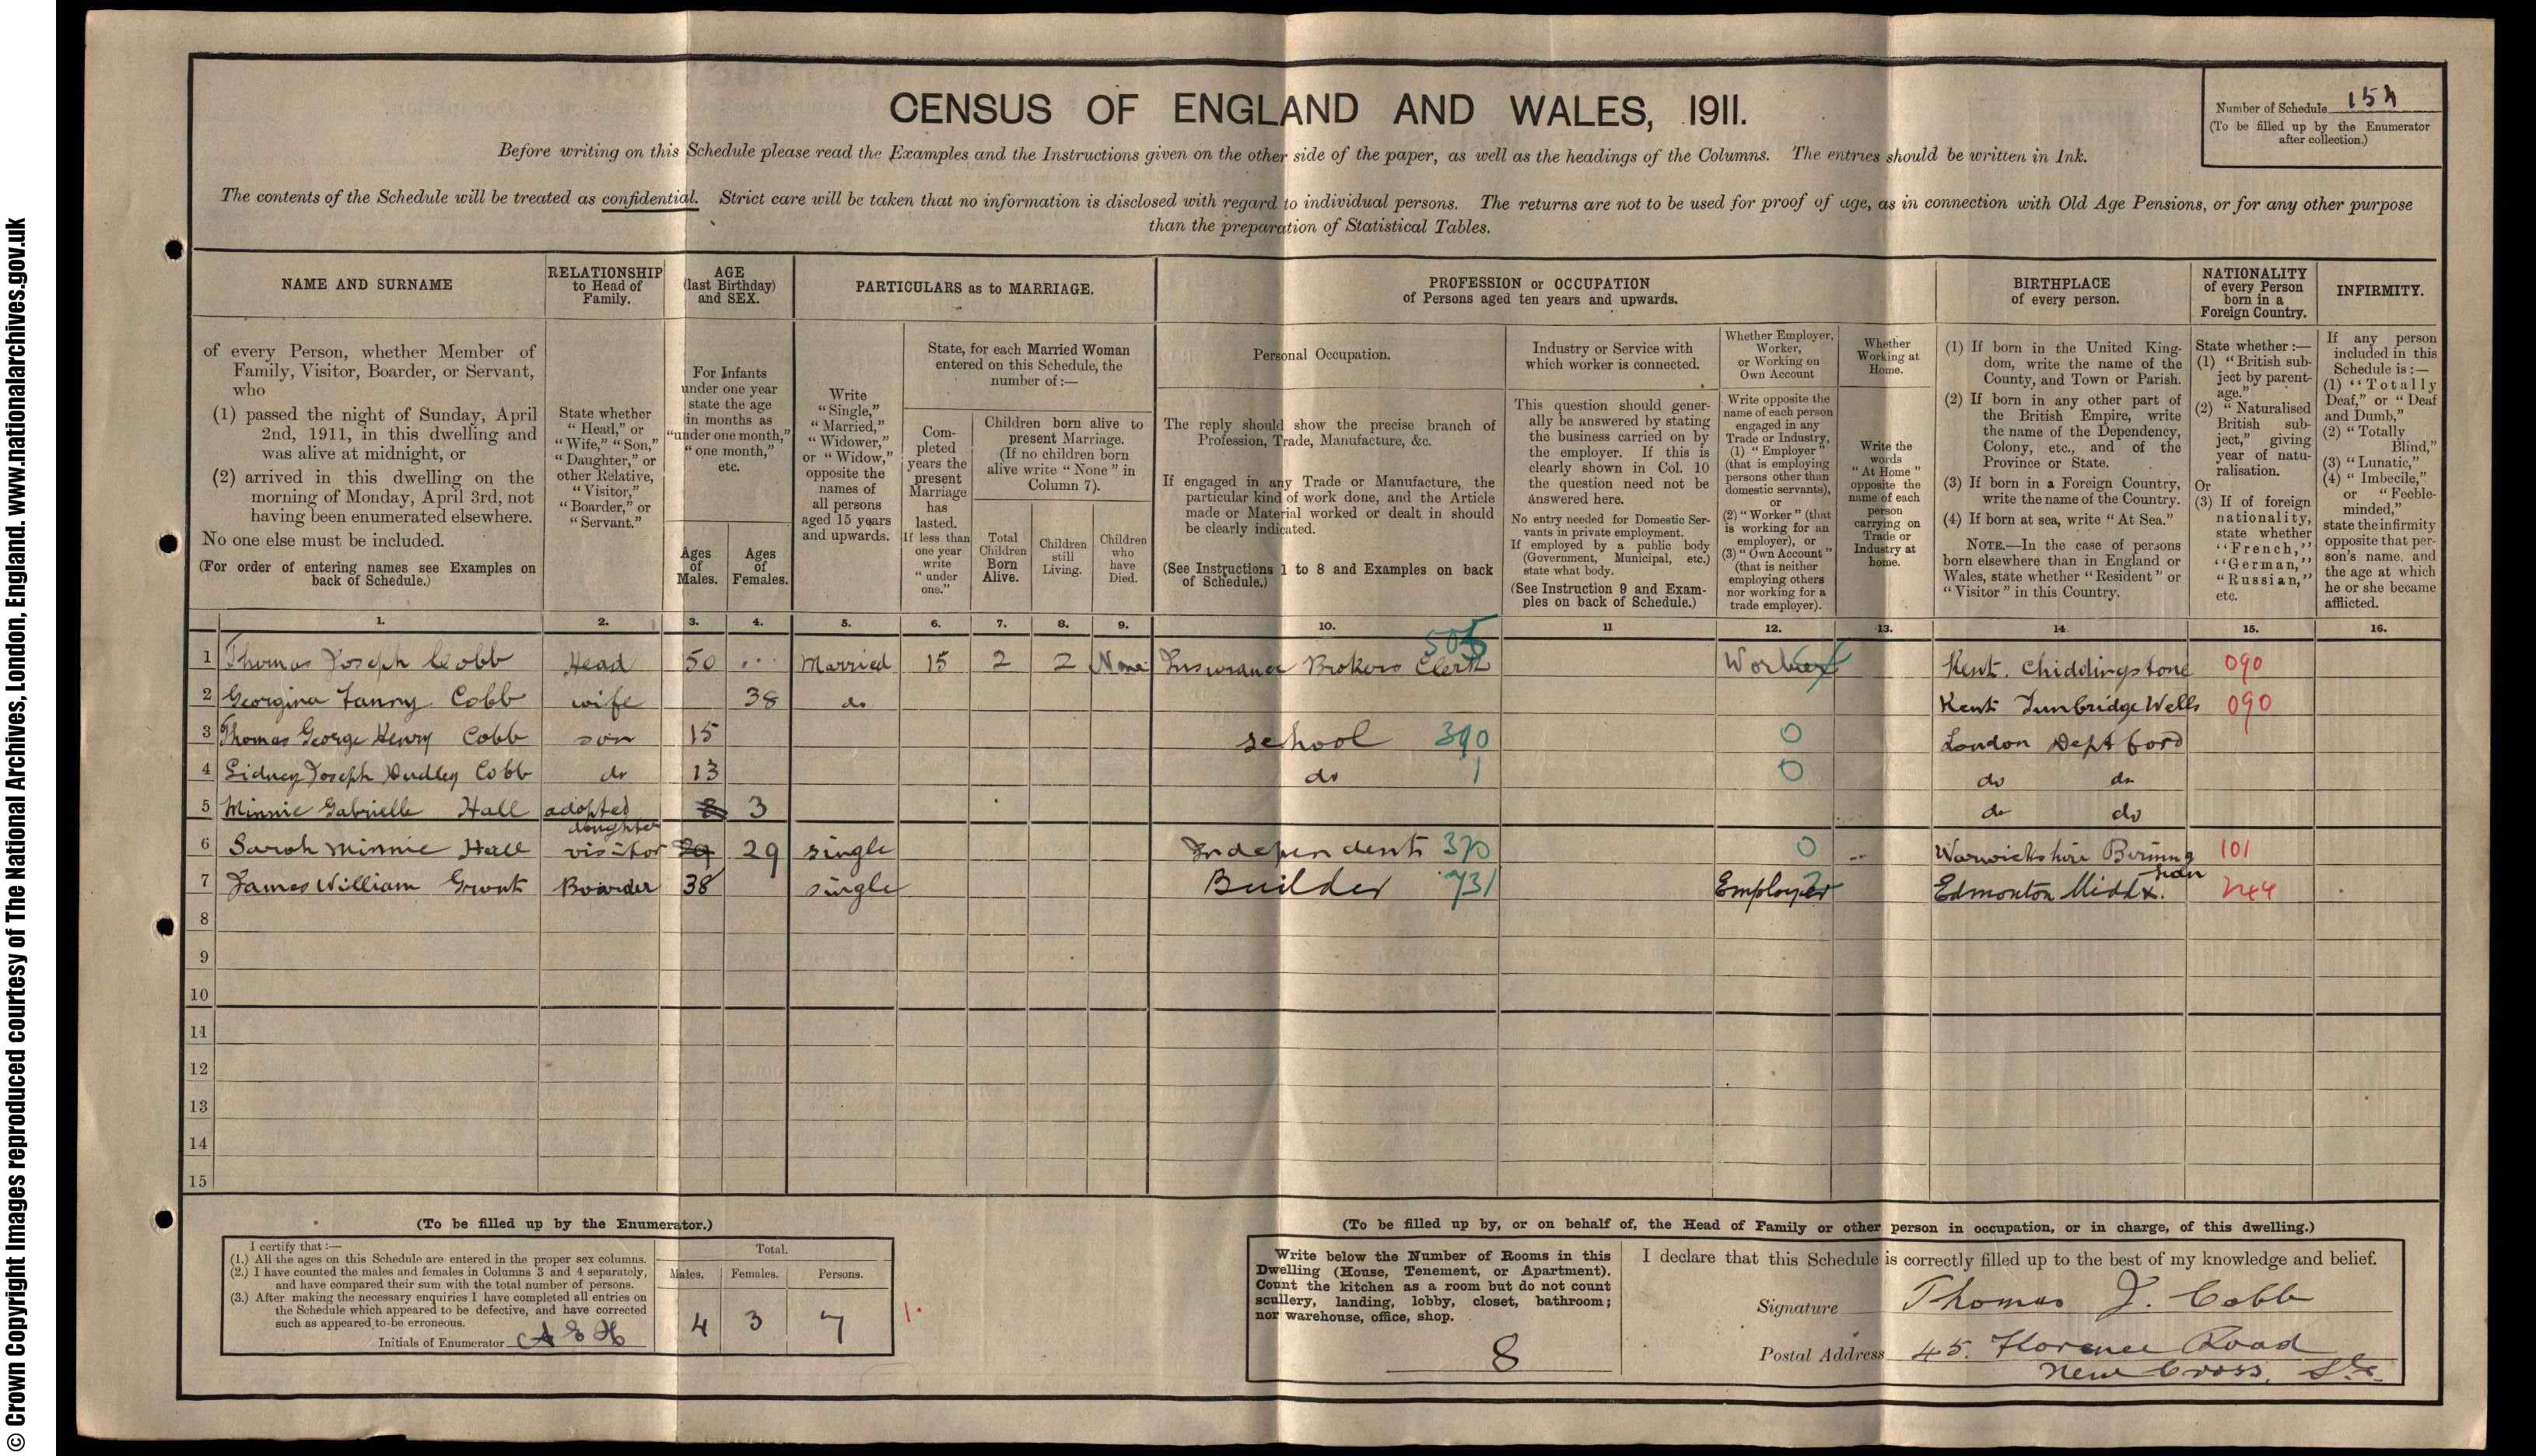 © Crown Copyright Images reproduced courtesy of The National Archives, London, England. www.nationalarchives.gov.uk
CENSUS OF ENGLAND AND WALES, 1911.
Number of Schedule 154
(To be filled up by the Enumerator after collection.)
Before writing on this Schedule please read the Examples and the Instructions given on the other side of the paper, as well as the headings of the Columns. The entries should be written in Ink.
The contents of the Schedule will be treated as confidential. Strict care will be taken that no information is disclosed with regard to individual persons. The returns are not to be used for proof of age, as in connection with Old Age Pensions, or for any other purpose
than the preparation of Statistical Tables.
NAME AND SURNAME
RELATIONSHIP
to Head of
Family.
AGE
(last Birthday)
and SEX.
PARTICULARS as to MARRIAGE.
PROFESSION or OCCUPATION
of Persons aged ten years and upwards.
BIRTHPLACE
of every person.
NATIONALITY
of every Person
born in a
Foreign Country.
INFIRMITY.
of every Person, whether Member of
Family, Visitor, Boarder, or Servant,
who
(1) passed the night of Sunday, April
2nd, 1911, in this dwelling and
was alive at midnight, or
(2) arrived in this dwelling on the
morning of Monday, April 3rd, not
having been enumerated elsewhere.
No one else must be included.
(For order of entering names see Examples on
back of Schedule.)
State whether
"Head," or
"Wife," "Son,"
"Daughter," or
other Relative,
"Visitor,"
"Boarder," or
"Servant."
For Infants
under one year
state the age
in months as
"under one month,"
"one month,"
etc.
Ages
of
Males.
Ages
of
Females.
Write
"Single,"
"Married,"
"Widower,"
or "Widow,"
opposite the
names of
all persons
aged 15 years
and upwards.
State, for each Married Woman
entered on this Schedule, the
number of :—
Com-
pleted
years the
present
Marriage
has
lasted.
If less than
one year
write
"under
one."
Children born alive to
present Marriage.
(If no children born
alive write "None" in
Column 7).
Total
Children
Born
Alive.
Children
still
Living.
Children
who
have
Died.
Personal Occupation.
The reply should show the precise branch of
Profession, Trade, Manufacture, &c.
If engaged in any Trade or Manufacture, the
particular kind of work done, and the Article
made or Material worked or dealt in should
be clearly indicated.
(See Instructions 1 to 8 and Examples on back
of Schedule.)
Industry or Service with
which worker is connected.
This question should gener-
ally be answered by stating
the business carried on by
the employer. If this is
clearly shown in Col. 10
the question need not be
answered here.
No entry needed for Domestic Ser-
vants in private employment.
If employed by a public body
(Government, Municipal, etc.)
state what body.
(See Instruction 9 and Exam-
ples on back of Schedule.)
Whether Employer,
Worker,
or Working on
Own Account
Write opposite the
name of each person
engaged in any
Trade or Industry,
(1) "Employer"
(that is employing
persons other than
domestic servants),
or
(2) "Worker" (that
is working for an
employer), or
(3) "Own Account"
(that is neither
employing others
nor working for a
trade employer).
Whether
Working at
Home.
Write the
words
"At Home"
opposite the
name of each
person
carrying on
Trade or
Industry at
home.
(1) If born in the United King-
dom, write the name of the
County, and Town or Parish.
(2) If born in any other part of
the British Empire, write
the name of the Dependency,
Colony, etc., and of the
Province or State.
(3) If born in a Foreign Country,
write the name of the Country.
(4) If born at sea, write "At Sea."
NOTE.—In the case of persons
born elsewhere than in England or
Wales, state whether "Resident" or
"Visitor" in this Country.
State whether :—
(1) "British sub-
ject by parent-
age."
(2) "Naturalised
British sub-
ject," giving
year of natu-
ralisation.
Or
(3) If of foreign
nationality,
state whether
"French,"
"German,"
"Russian,"
etc.
If any person
included in this
Schedule is :—
(1) "Totally
Deaf," or "Deaf
and Dumb,"
(2) "Totally
Blind,"
(3) "Lunatic,"
(4) "Imbecile,"
or "Feeble-
minded,"
state the infirmity
opposite that per-
son's name, and
the age at which
he or she became
afflicted.
1. 2. 3. 4. 5. 6. 7. 8. 9. 10. 11 12. 13. 14. 15. 16.
1 Thomas Joseph Cobb Head 50 Married 15 2 2 None Insurance Brokers Clerk 505 Worker Kent. Chiddingstone 090
2 Georgina Fanny Cobb wife 38 do Kent Tunbridge Wells 090
3 Thomas George Henry Cobb son 15 school 390 0 London Deptford
4 Sidney Joseph Dudley Cobb do 13 do 1 0 do do
5 Minnie Gabrielle Hall adopted daughter 3 do do
6 Sarah Minnie Hall visitor 29 29 single Independent 370 0 Warwickshire Birmingham 101
7 James William Grout Boarder 38 single Builder 731 Employer Edmonton Middx. 244
8
9
10
11
12
13
14
15
(To be filled up by the Enumerator.)
I certify that :—
(1.) All the ages on this Schedule are entered in the proper sex columns.
(2.) I have counted the males and females in Columns 3 and 4 separately,
and have compared their sum with the total number of persons.
(3.) After making the necessary enquiries I have completed all entries on
the Schedule which appeared to be defective, and have corrected
such as appeared to be erroneous.
Initials of Enumerator A E H
Total.
Males. Females. Persons.
4 3 7
1.
(To be filled up by, or on behalf of, the Head of Family or other person in occupation, or in charge, of this dwelling.)
Write below the Number of Rooms in this
Dwelling (House, Tenement, or Apartment).
Count the kitchen as a room but do not count
scullery, landing, lobby, closet, bathroom;
nor warehouse, office, shop.
8
I declare that this Schedule is correctly filled up to the best of my knowledge and belief.
Signature Thomas J. Cobb
Postal Address 45. Florence Road
New Cross, S.E.